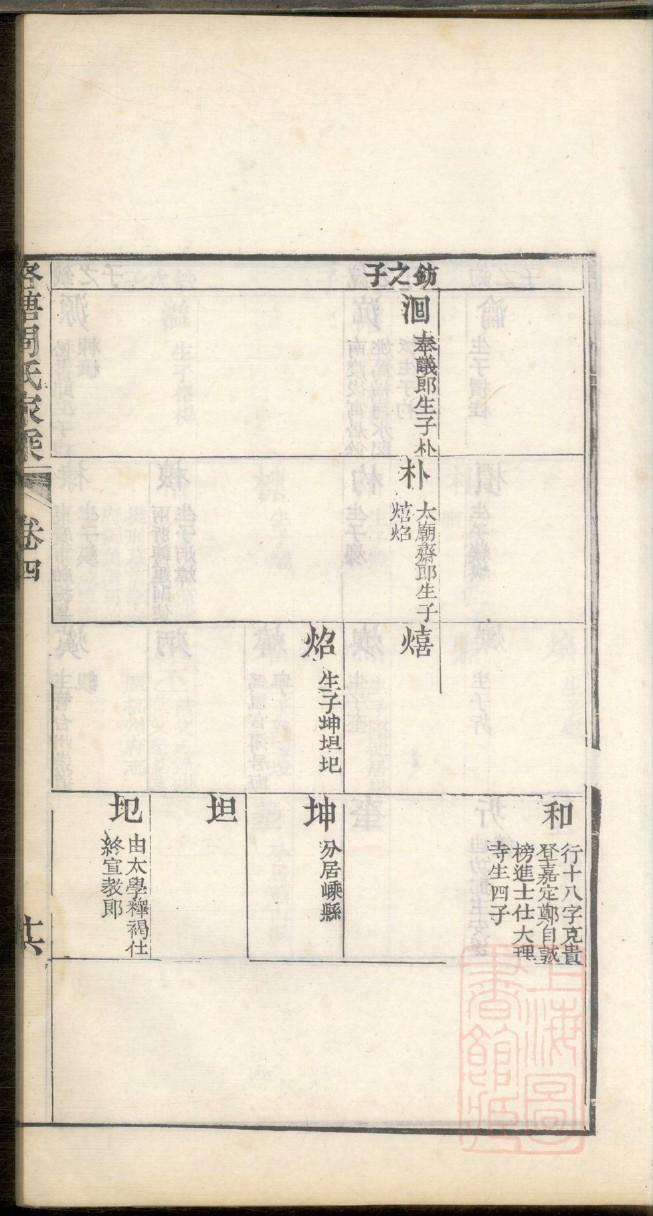 鈁之子
洄
奉議郎生子朴
朴
太廟齋郎生子
熺焰
熺
焰
生子坤坦圯
和
行十八字克貴
登嘉定鄭自誠
榜進士仕大理
寺生四子
坤
分居嵊縣
坦
圯
由太學釋褐仕
終宣教郎
周氏家乘
卷四
上海圖
書館藏